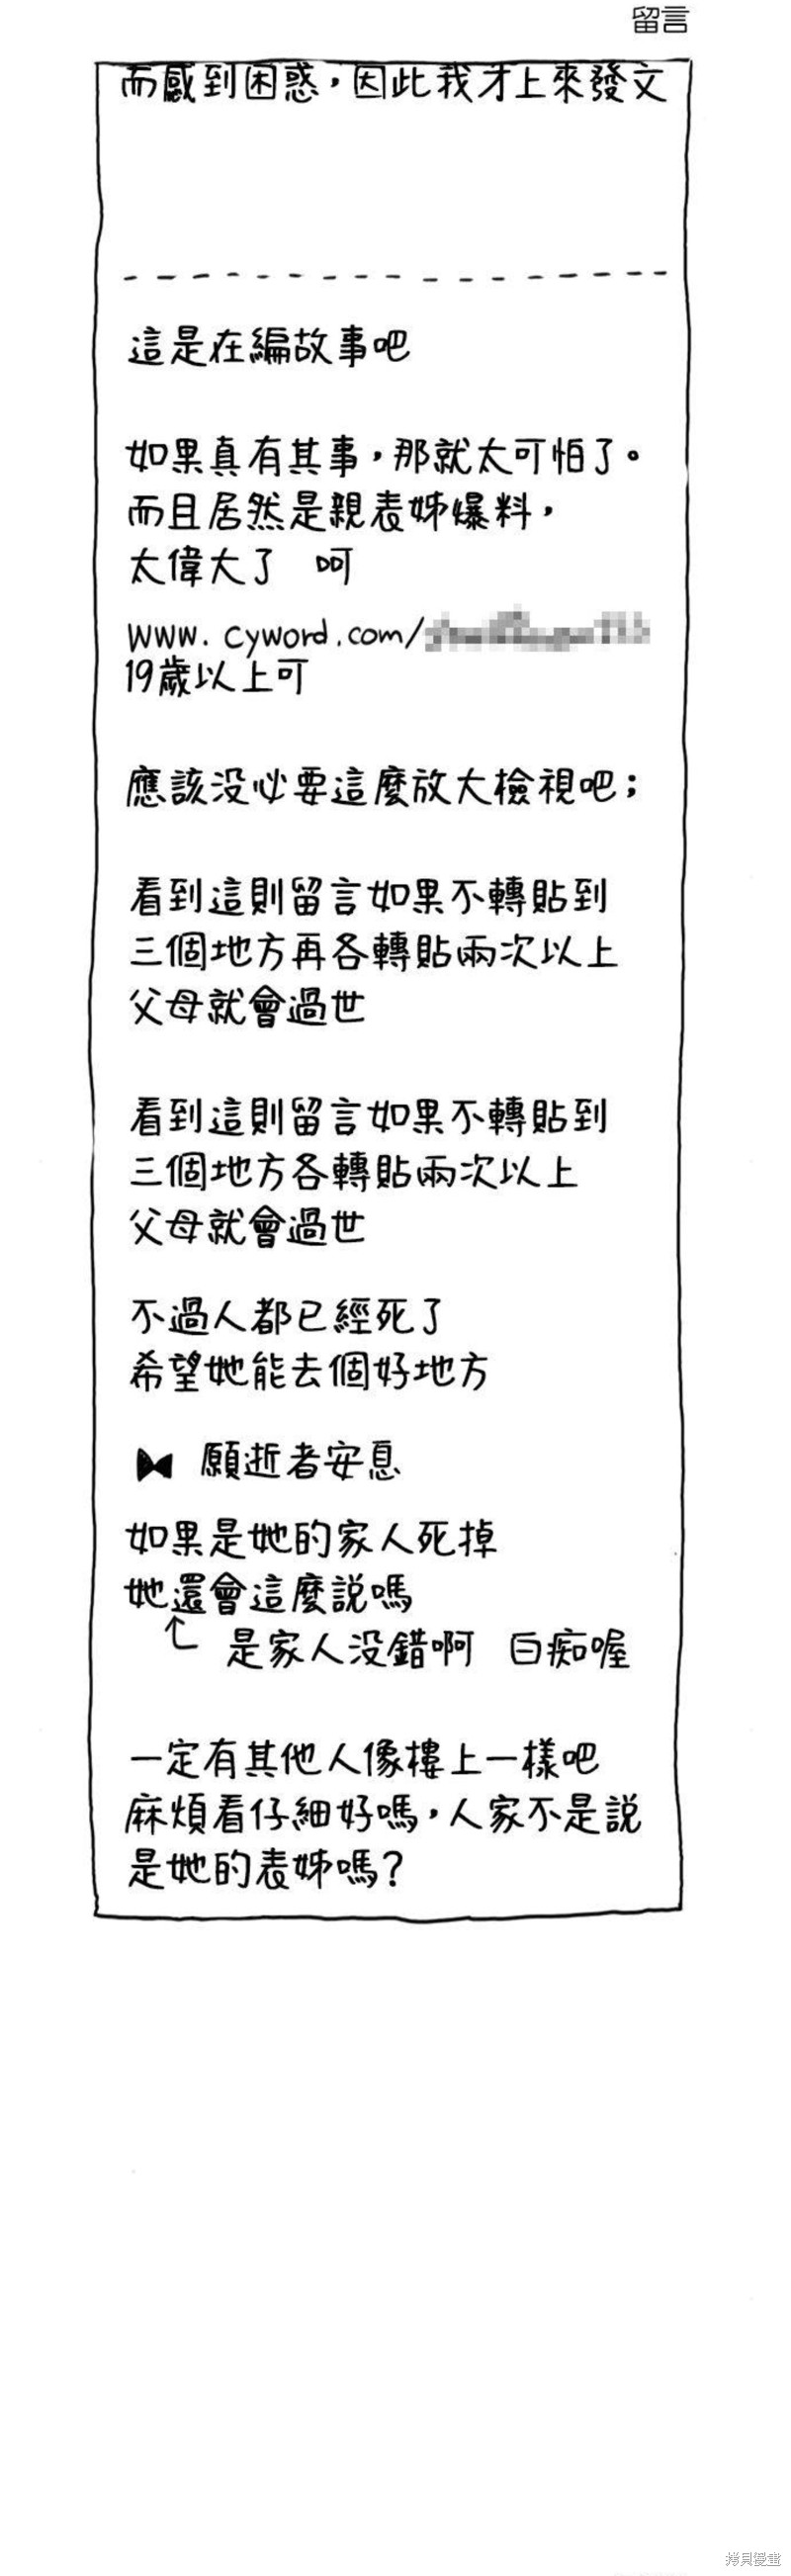 留言
而感到困惑，因此我才上來發文
這是在編故事吧
如果真有其事，那就太可怕了。
而且居然是親表姊爆料，
太偉大了 呵
www.cyword.com/
19歲以上可
應該没必要這麼放大檢視吧；
看到這則留言如果不轉貼到
三個地方再各轉貼兩次以上
父母就會過世
看到這則留言如果不轉貼到
三個地方各轉貼兩次以上
父母就會過世
不過人都已經死了
希望她能去個好地方
願逝者安息
如果是她的家人死掉
她還會這麼說嗎
是家人没錯啊 白痴喔
一定有其他人像樓上一樣吧
麻煩看仔細好嗎，人家不是說
是她的表姊嗎？
拷貝漫畫